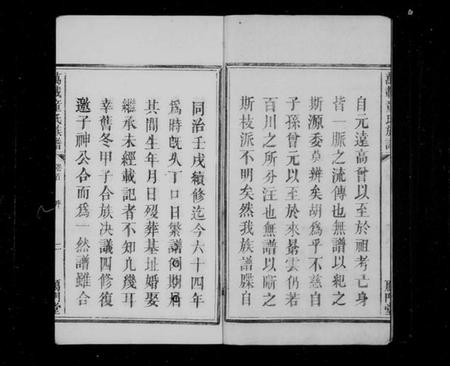 自元遠高曾以至於祖考亡身
皆一脈之流傳也無譜以紀之
斯源委莫辨矣胡為乎不慈自
子孫曾元以至於來晜雲仍若
百川之所分注也無譜以晰之
斯枝派不明矣然我族譜牒自
萬載童氏族譜
同治壬戌續修迄今六十四年
為時旣久丁口日繁譜
其間生年月日歿葬基址婚娶
繼承未經載記者不知凡幾耳
幸舊冬甲子合族決議四修復
邀子神公合而為一然譜雖合
萬載童氏族譜
卷首
序
二
鴈門堂